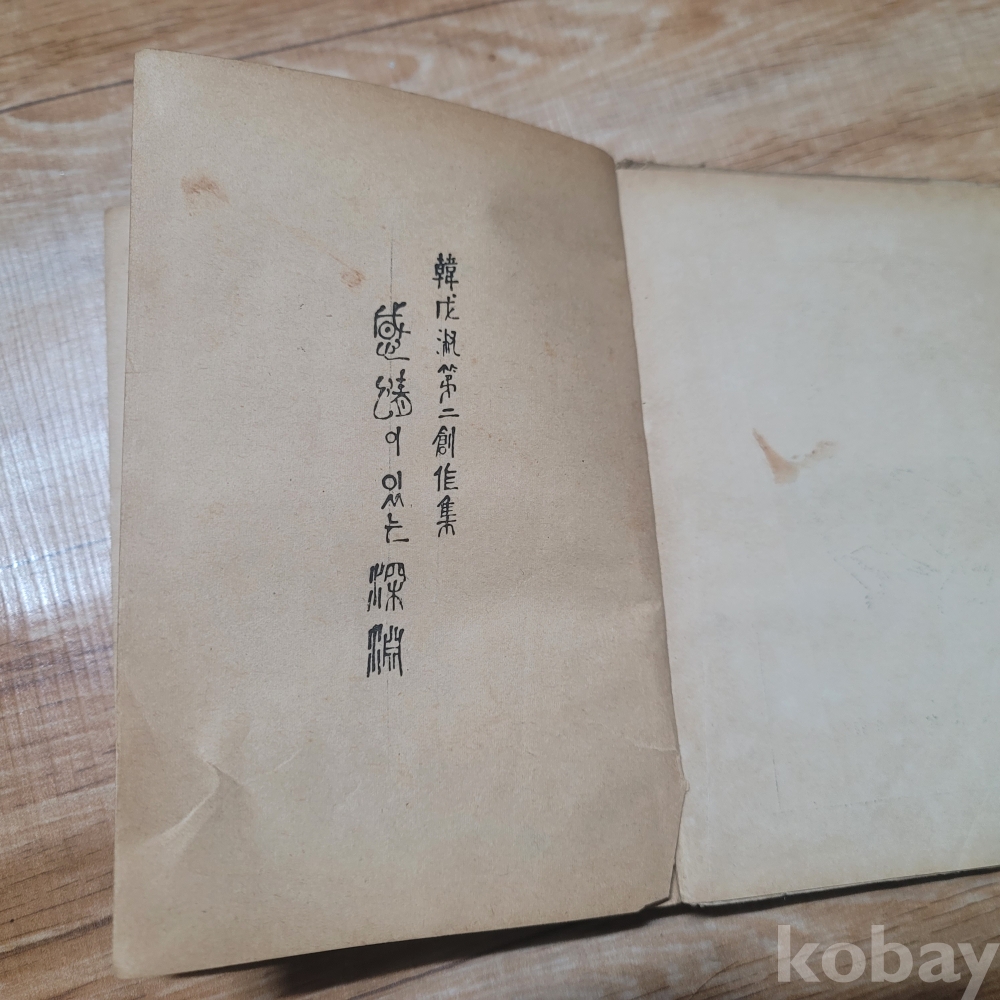 韓戊淑第二創作集
感情이있는深淵
kobay